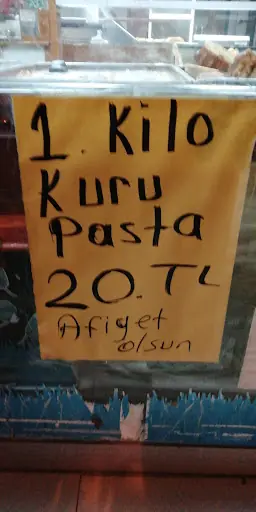 1. Kilo
Kuru
Pasta
20. TL
Afiyet
olsun